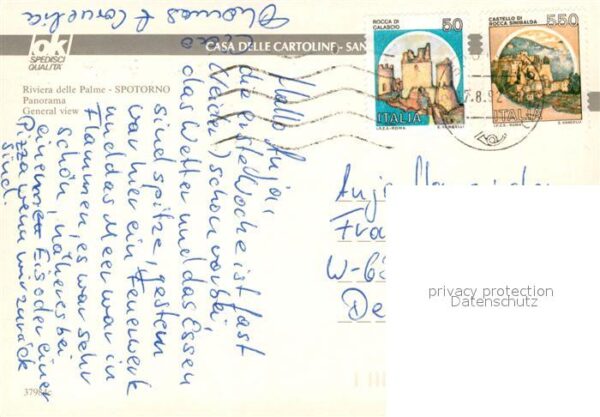 ok
SPEDISCI
QUALITÀ
CASA DELLE CARTOLINE - SAN
Riviera delle Palme - SPOTORNO
Panorama
General view
ROCCA DI
CALASCIO
50
ITALIA
I.P.Z.S.-ROMA
CASTELLO DI
ROCCA SINIBALDA
550
ITALIA
7.8.92
Thomas + Cornelia
Hallo Anja,
die erste Woche ist fast
(leider) schon vorbei,
das Wetter und das Essen
sind spitze, gestern
war hier ein Feuerwerk
und das Meer war in
Flammen, es war sehr
schön, näheres bei
einem Eis oder einer
Pizza wenn wir zurück
sind.
Anja
W-6
De
privacy protection
Datenschutz